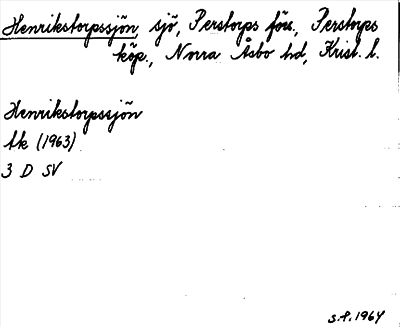 Henrikstorpssjön sjö, Perstorps förs., Perstorps
köp., Norra Åsbo hd, Krist. l.
Henrikstorpssjön
tk (1963)
3 D SV
S.F. 1964